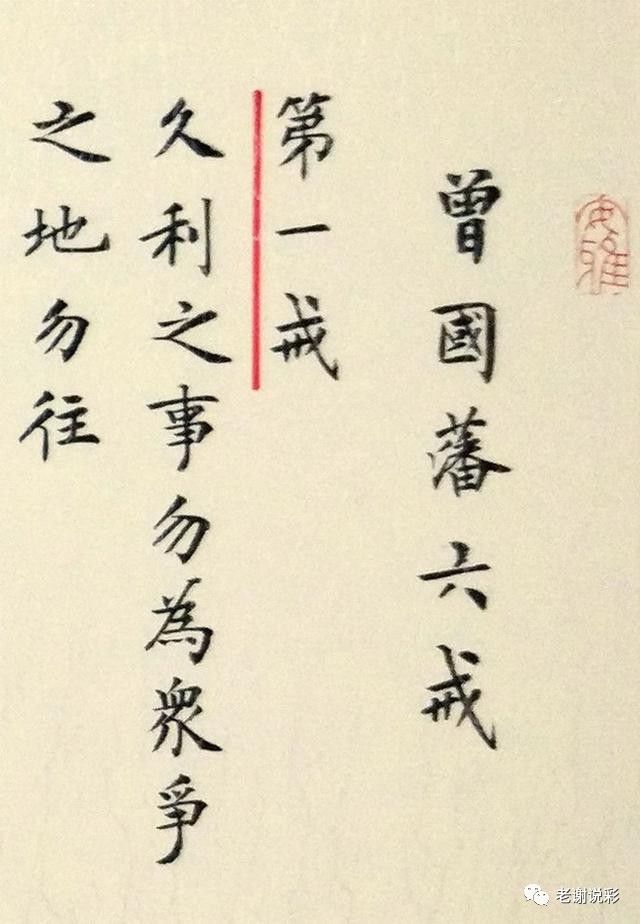 曾國藩六戒
第一戒
久利之事勿為衆爭
之地勿往
老谢说彩